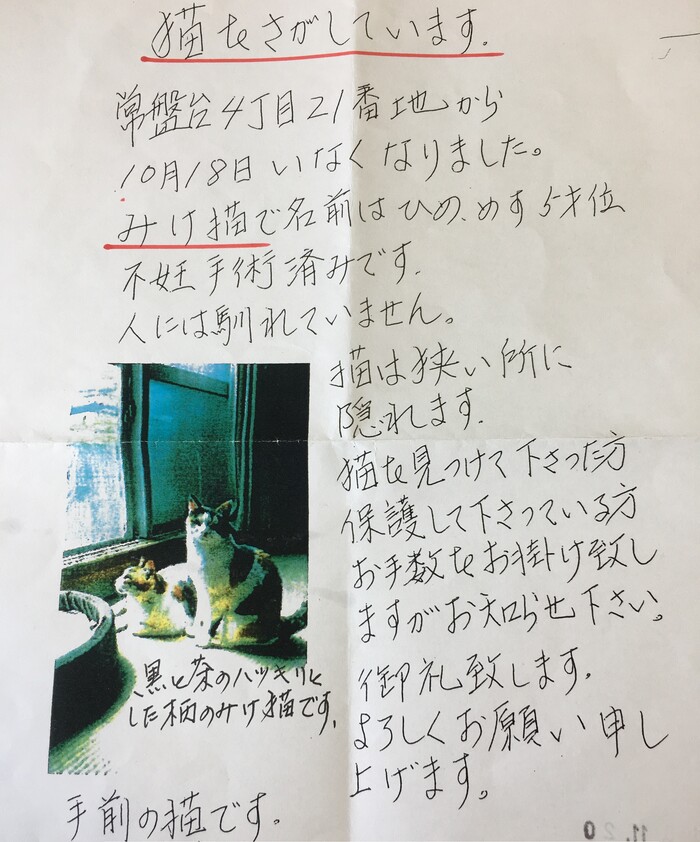 猫をさがしています.
常盤台4丁目21番地から
10月18日いなくなりました。
みけ猫で名前はひめ、めす5才位
不妊手術済みです.
人には馴れていません。
猫は狭い所に
隠れます.
猫を見つけて下さった方
保護して下さっている方
お手数をお掛け致し
ますがお知らせ下さい。
御礼致します.
よろしくお願い申し
上げます。
黒と茶のハッキリと
した柄のみけ猫です.
手前の猫です.
11.20